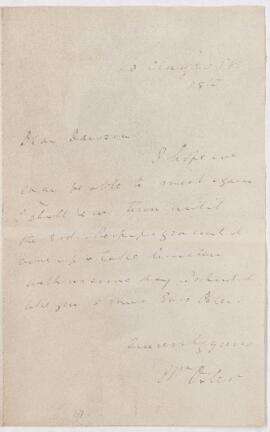 18th
Dear Dawson
I hope we
may be able to meet again
I shall be in town until
the 23d. Perhaps you could
come up & take luncheon
with me some day I should
like you to
Sincerely yours
Wm Osler